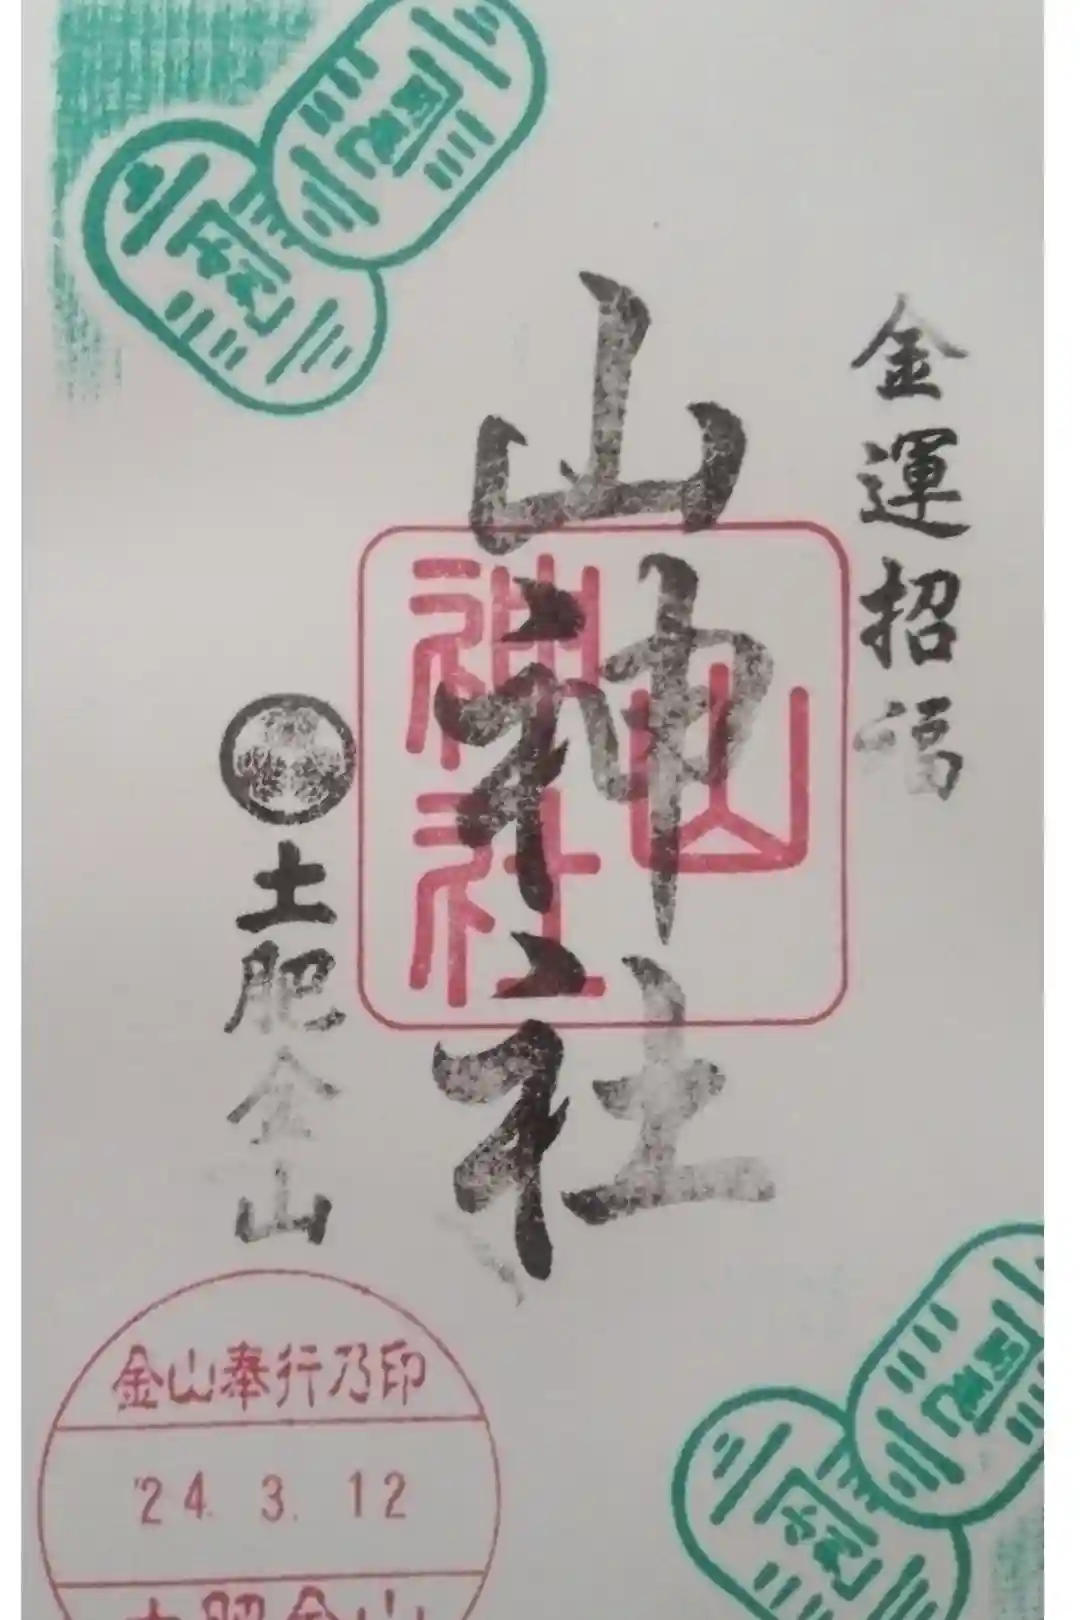 金運招福
山神社
山
神社
土肥金山
金山奉行乃印
'24. 3. 12
土肥金山